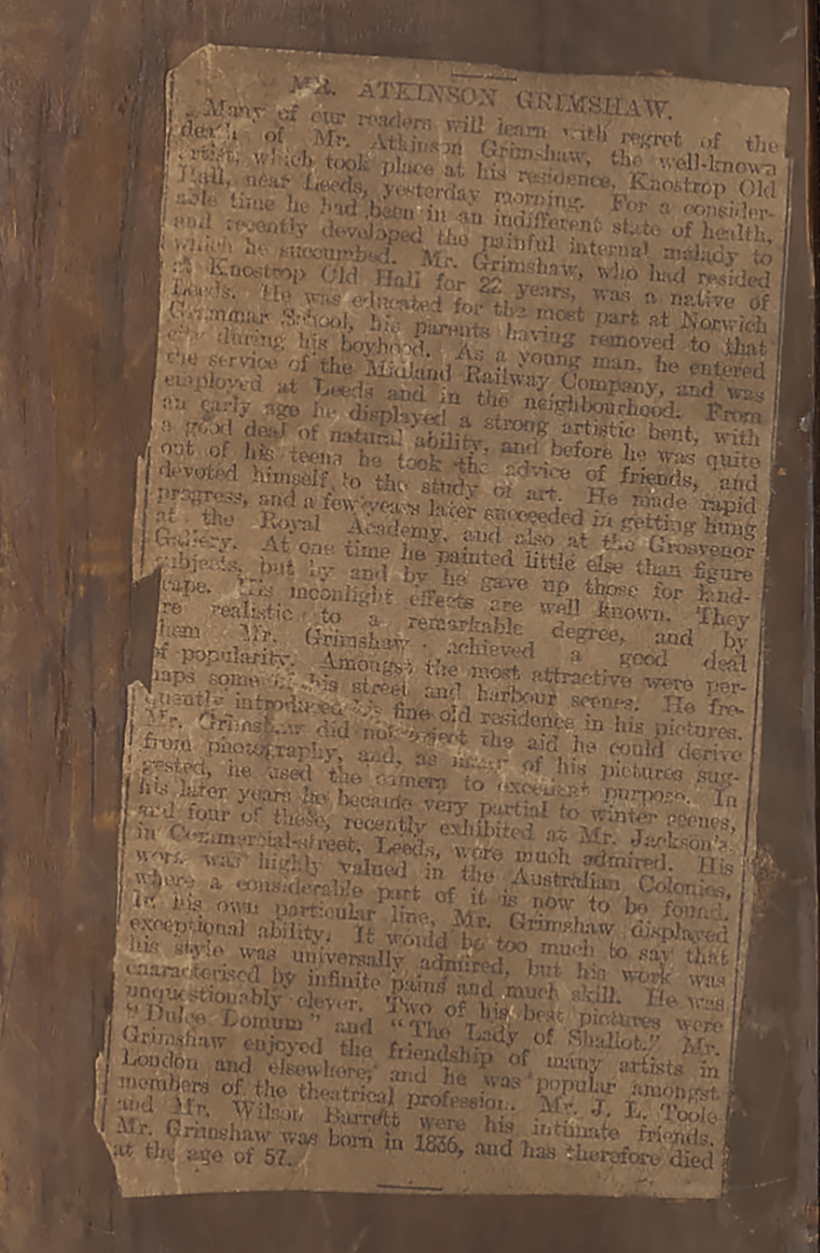 MR. ATKINSON GRIMSHAW.
Many of our readers will learn with regret of the
death of Mr. Atkinson Grimshaw, the well-known
artist, which took place at his residence, Knostrop Old
Hall, near Leeds, yesterday morning. For a consider-
able time he had been in an indifferent state of health,
and recently developed the painful internal malady to
which he succumbed. Mr. Grimshaw, who had resided
at Knostrop Old Hall for 22 years, was a native of
Leeds. He was educated for the most part at Norwich
Grammar School, his parents having removed to that
city during his boyhood. As a young man, he entered
the service of the Midland Railway Company, and was
employed at Leeds and in the neighbourhood. From
an early age he displayed a strong artistic bent, with
a good deal of natural ability, and before he was quite
out of his teens he took the advice of friends, and
devoted himself to the study of art. He made rapid
progress, and a few years later succeeded in getting hung
at the Royal Academy, and also at the Grosvenor
Gallery. At one time he painted little else than figure
subjects, but by and by he gave up those for land-
cape. His moonlight effects are well known. They
re realistic to a remarkable degree, and by
hem Mr. Grimshaw achieved a good deal
of popularity. Amongst the most attractive were per-
haps some of his street and harbour scenes. He fre-
quently introduced his fine old residence in his pictures.
Mr. Grimshaw did not reject the aid he could derive
from photography, and, as many of his pictures sug-
gested, he used the camera to excellent purpose. In
his later years he became very partial to winter scenes,
and four of these, recently exhibited at Mr. Jackson's,
in Commercial-street, Leeds, were much admired. His
work was highly valued in the Australian Colonies,
where a considerable part of it is now to be found.
In his own particular line, Mr. Grimshaw displayed
exceptional ability. It would be too much to say that
his style was universally admired, but his work was
characterised by infinite pains and much skill. He was
unquestionably clever. Two of his best pictures were
"Dulce Domum" and "The Lady of Shallot." Mr.
Grimshaw enjoyed the friendship of many artists in
London and elsewhere, and he was popular amongst
members of the theatrical profession. Mr. J. L. Toole
and Mr. Wilson Barrett were his intimate friends.
Mr. Grimshaw was born in 1836, and has therefore died
at the age of 57.